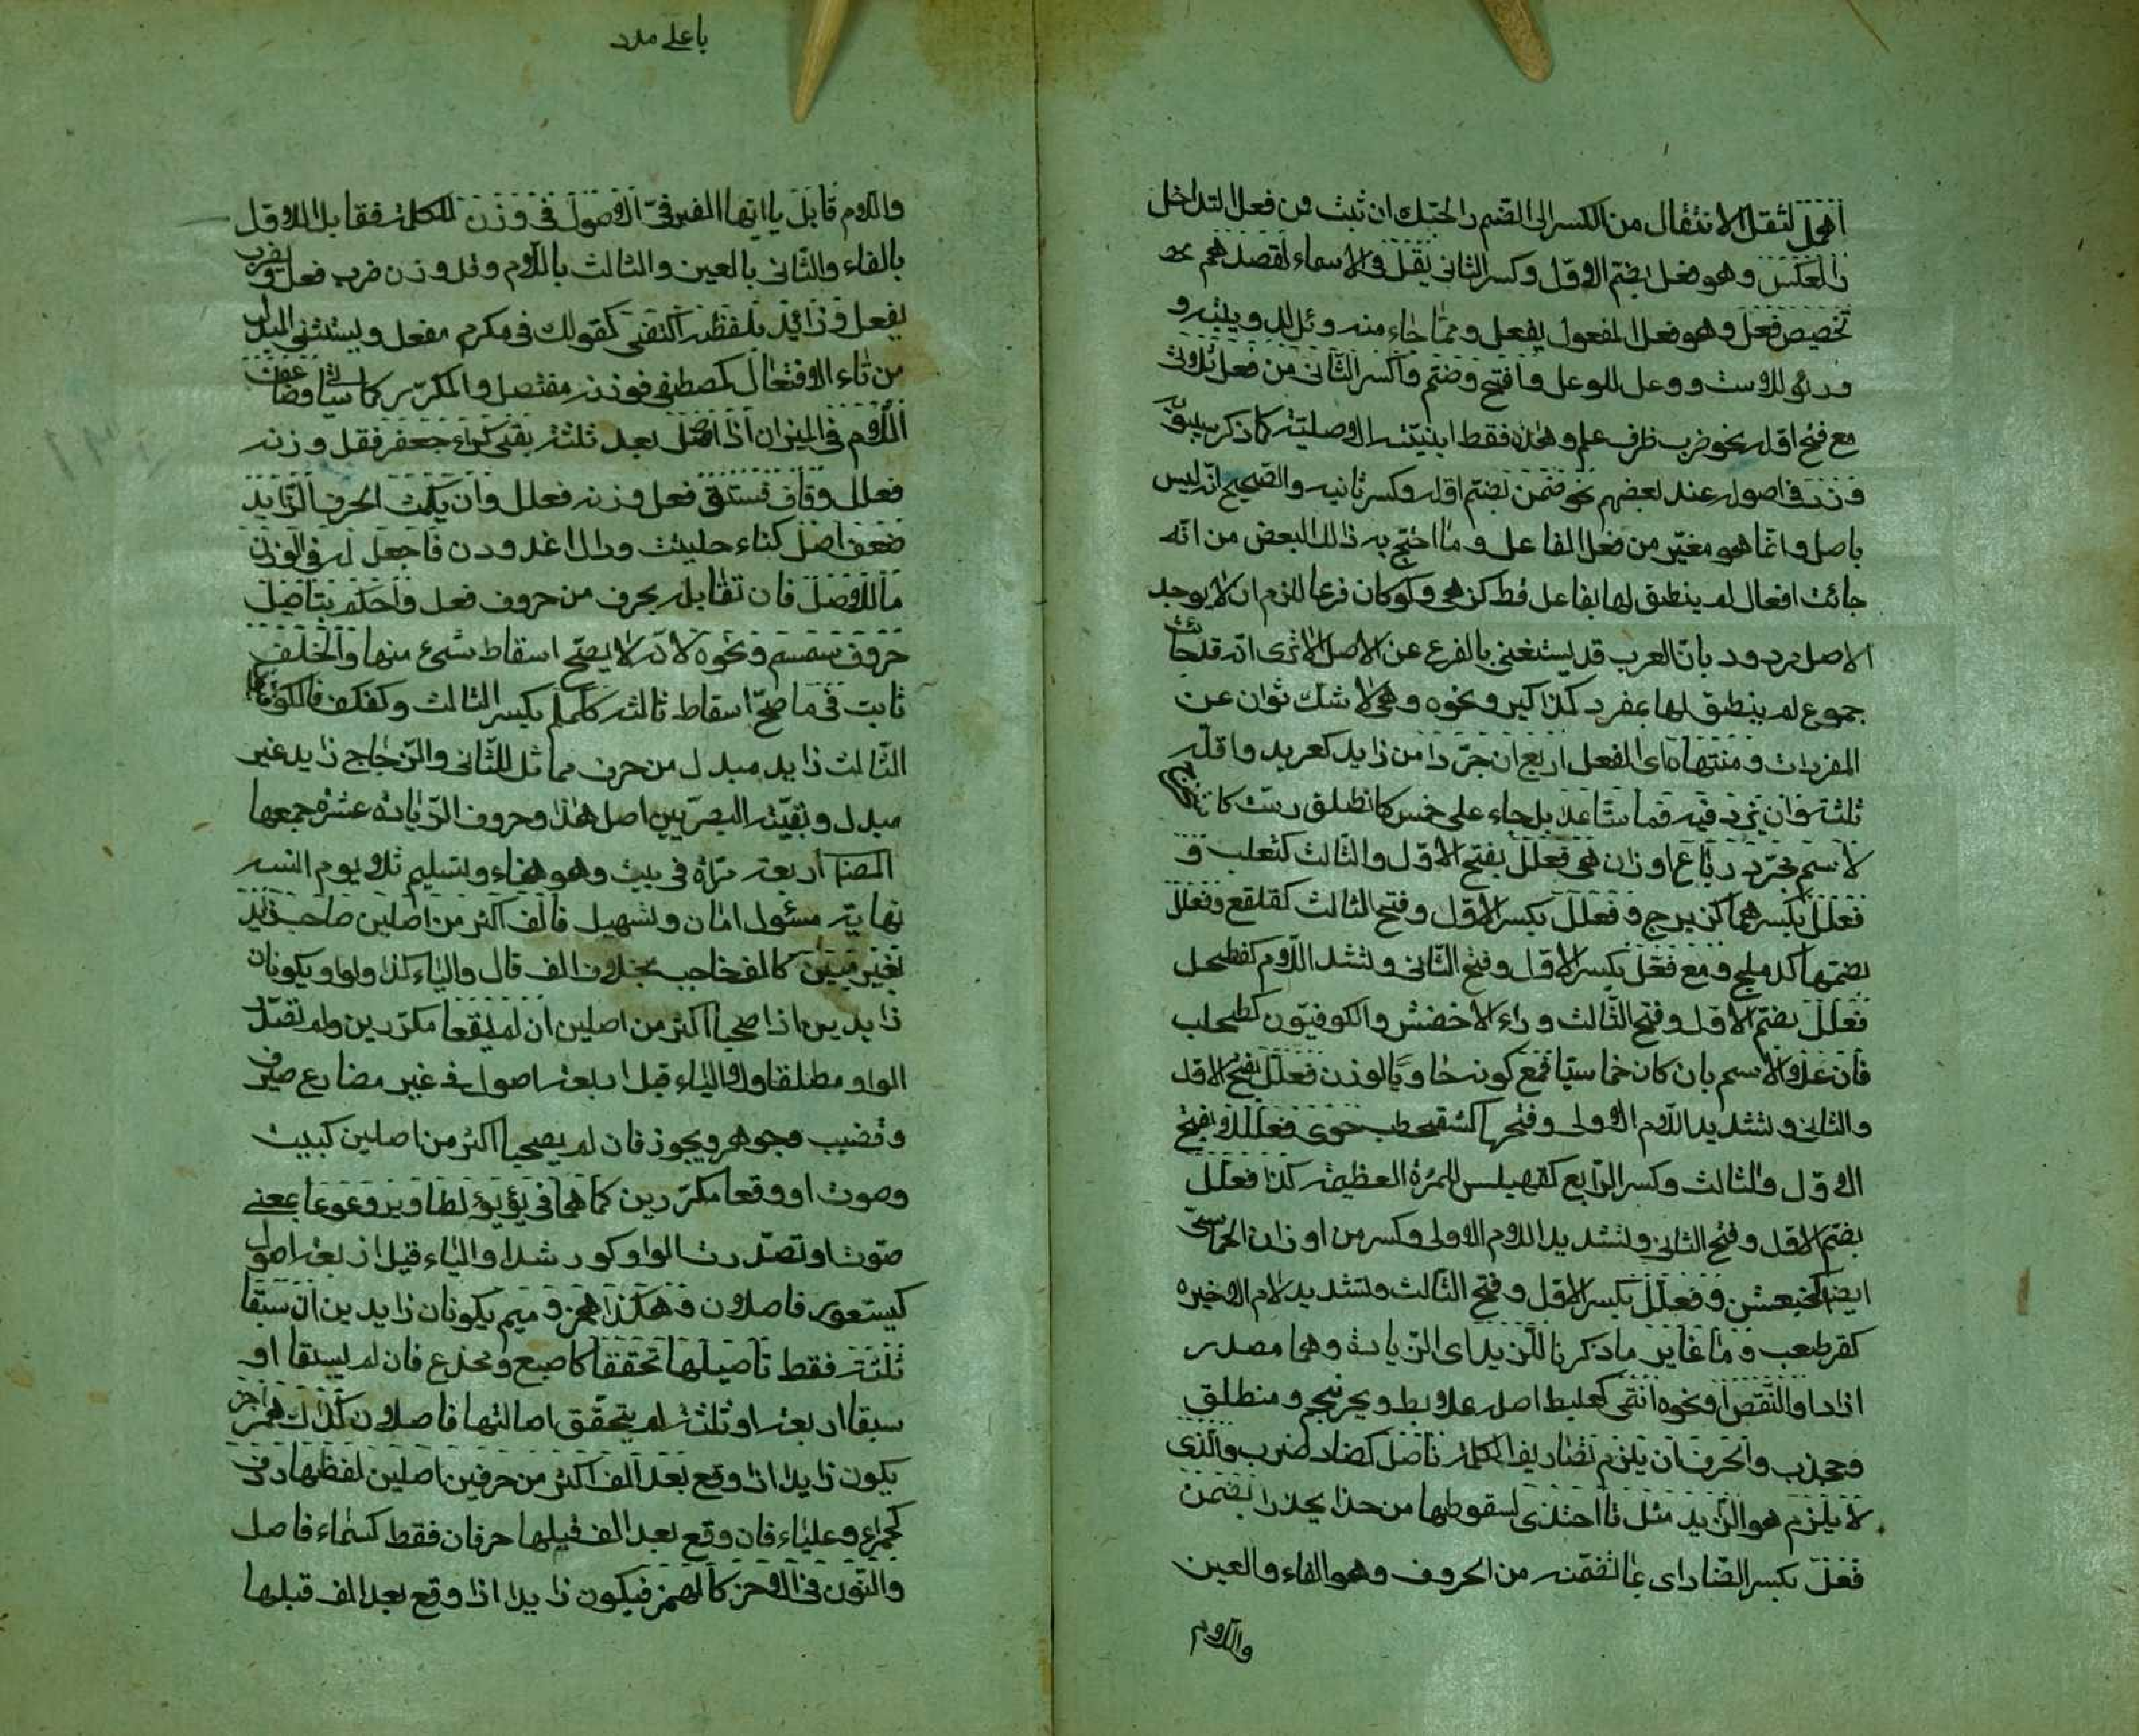 أهمل لثقل الانتقال من الكسر الى الضم والحبك ان ثبت فن فعل التداخل
والعكس وهو فعل بضم الاول وكسر الثاني يقل في الاسماء لقصدهم
تخصيص فعل وهو فعل المفعول بفعل ومما جاء منه دئل لدويبة و
ورئم للاست ووعل للوعل وافتح وضم واكسر الثاني من فعل ثلاثي
مع فتح اوله نحو ضرب ظرف علم وهذه فقط ابنيته الاصلية كما ذكر سيبويه
وزد في اصوله عند بعضهم نحو ضمن بضم اوله وكسر ثانيه والصحيح انه ليس
باصل وانما هو مغير من فعل الفاعل وما احتج به ذلك البعض من انه
جائت افعال لم ينطق لها بفاعل قط كزهي ولو كان فرعا للزم ان لا يوجد
الاصل مردود بان العرب قد يستغني بالفرع عن الاصل الا ترى انه قد جائت
جموع لم ينطق لها بمفرد كمذاكير ونحوه وهي لا شك ثوان عن
المفردات ومنتهاه اى الفعل اربع ان جردا من زايد كعربد واقله
ثلثة وان يزد فيه فما ستا عدا بل جاء على خمس كانطلق وست كاستخرج
لاسم مجرد رباع اوزان هي فعلل بفتح الاول والثالث كثعلب و
فعلل بكسرهما كزبرج وفعلل بكسر الاول وفتح الثالث كقلفع وفعلل
بضمهما كدملج ومع فعل بكسر الاول وفتح الثاني وتشديد اللام كفطحل
فعلل بضم الاول وفتح الثالث وراء الاخفش والكوفيون كطحلب
فان علا والاسم بان كان خماسيا فمع كونه حاويا لوزن فعلل بفتح الاول
والثاني وتشديد اللام الاولى وفتحها كشقحطب حوى فعللا بفتح
الاول والثالث وكسر الرابع كقهبلس للمرءة العظيمة كذا فعلل
بضم الاول وفتح الثاني وتشديد اللام الاولى وكسر من اوزان الخماسي
ايضا كخبعثن وفعلل بكسر الاول وفتح الثالث وتشديد لام الاخيره
كقرطعب وما غاير ما ذكرنا للزيد اى الزيادة وهما مصدر
ازداد او النقص او نحوه انتمى كعلبط اصله علابط ويحرنجم ومنطلق
وجخدب والحرف ان يلزم تصاريف الكلمة فاصل كضاد ضرب والذي
لا يلزم هو الزايد مثل تا احتذى لسقوطها من حذا يحذوا بضمن
فعل بكسر الضاد اى بما تضمنه من الحروف وهو الفاء والعين
واللام
يا على مدد
واللام قابل يا ايها الصرفي الاصول في وزن الكلمة فقابل الاول
بالفاء والثاني بالعين والثالث باللام وقل وزن ضرب فعل ويضرب
يفعل وزائد بلفظه اكتفى كقولك في مكرم مفعل ويستثنى المبدل
من تاء الافتعال كمصطفى فوزنه مفتعل والمكرر كما سياتي وضاعف
اللام في الميزان اذا اصل بعد ثلثة بقي كراء جعفر فقل وزنه
فعلل وقاف فستق فعل وزنه فعلل وان يك الحرف الزايد
ضعف اصل كتاء حلتيت ودال اغدودن فاجعل له في الوزن
ما للاصل فان تقابله بحرف من حروف فعل واحكم بتاصيل
حروف سمسم ونحوه لانه لا يصح اسقاط شيء منها والخلف
ثابت في ما صح اسقاط ثالثه كلملم بكسر الثالث وكفكف فالكوفيون
الثالث زايد مبدل من حرف مماثل للثاني والزجاج زايد غير
مبدل وبقية البصريين اصل هذا وحروف الزيادة عشرة جمعها
المصنف اربعة مرات في بيت وهو هناء وتسليم تلا يوم انسه
نهاية مسئول امان وتسهيل فالف اكثر من اصلين صاحب زايد
بغير مين كالف حاجب بخلاف الف قال والياء كذا والواو يكونان
زايدين اذا صحبا اكثر من اصلين ان لم يقعا مكررين ولم تصدر
الواو مطلقا ولا الياء قبل اربعة اصول في غير مضارع صيرف
وقضيب وجوهر وعجوز فان لم يصحبا اكثر من اصلين كبيت
وصوت او وقعا مكررين كما هما في يؤيؤ لطاوير ووعوعا بمعنى
صوت او تصدرت الواو كورشدا والياء قبل اربعة اصول
كيستعور فاصلان وهكذا همز وميم يكونان زايدين ان سبقا
ثلثة فقط تاصيلها تحققا كاصبع ومخدع فان لم يسبقا او
سبقا اربعة او ثلثة لم يتحقق اصالتها فاصلان كذلك همز اخر
يكون زايدا اذا وقع بعد الف اكثر من حرفين اصلين لفظها ردف
كحمراء وعلباء فان وقع بعد الف قبلها حرفان فقط كسماء فاصل
والنون في الاخر كالهمز فيكون زايدا اذا وقع بعد الف قبلها